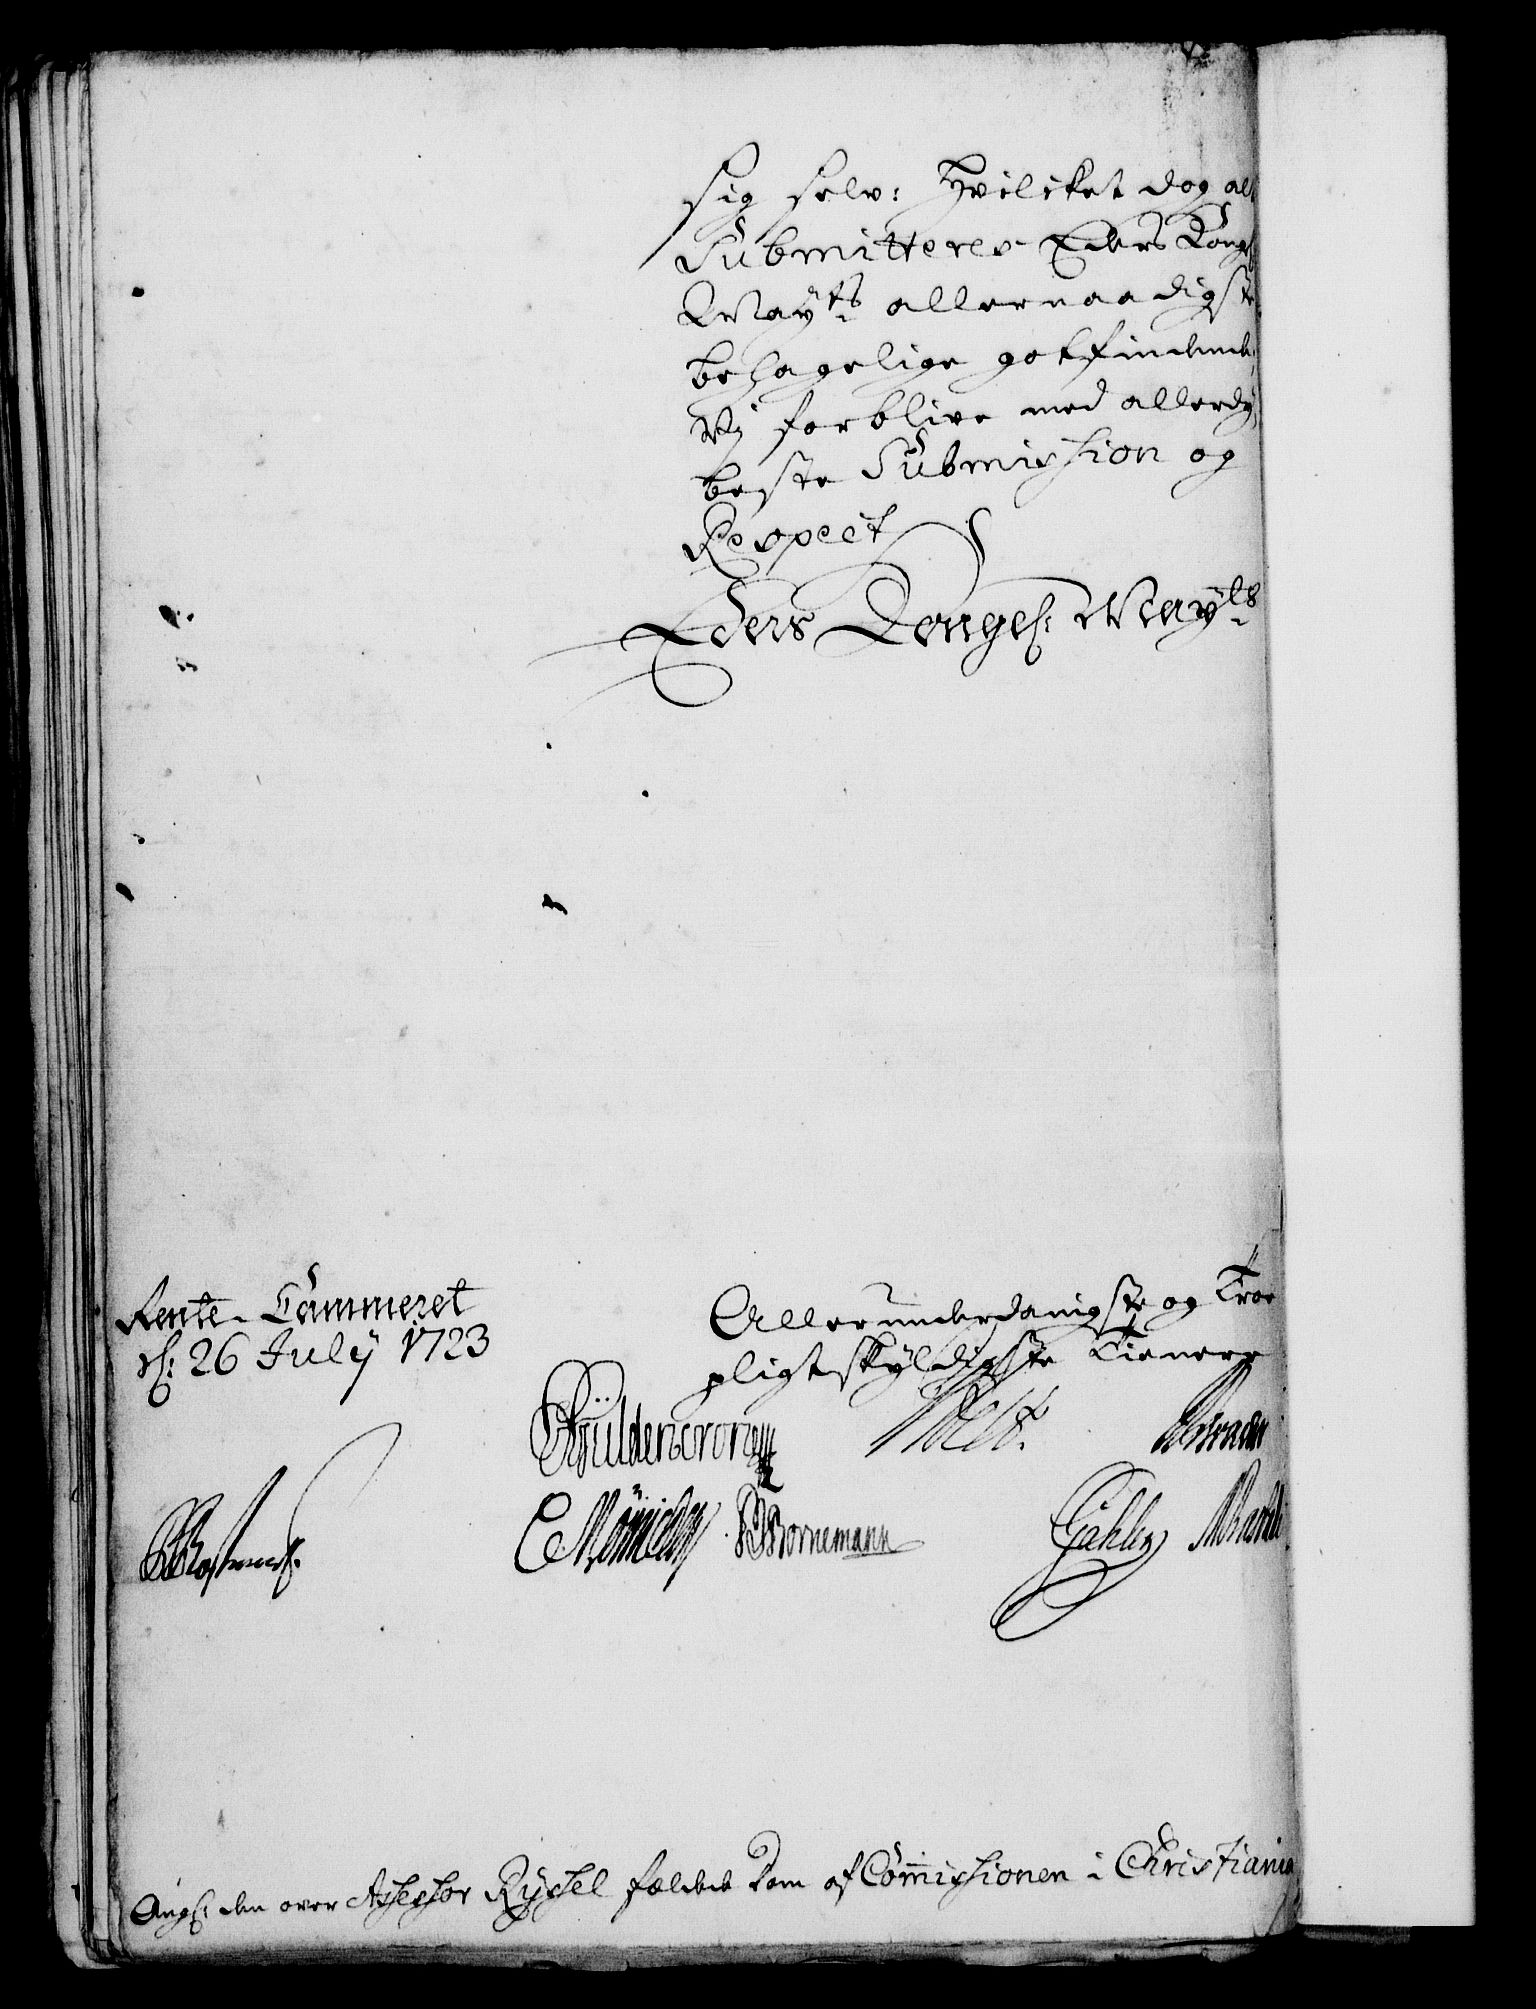 sig selv: Hvilcket dog alt
Submitteres Eders Kongl
Mayts allernaadigste
behagelige gotfindende,
Vj forblive med allerdy
beste Submission og
Respect
Eders Kongel: Mayts
Rente-Cammeret
d: 26 July 1723
Allerunderdanigste og Troe
pligtskyldigste Tienere
Güldencrone
CMönichen Bornemann
Gähler
Ang: den over Assessor Ryssel fældede Dom af Commissionen i Christiania